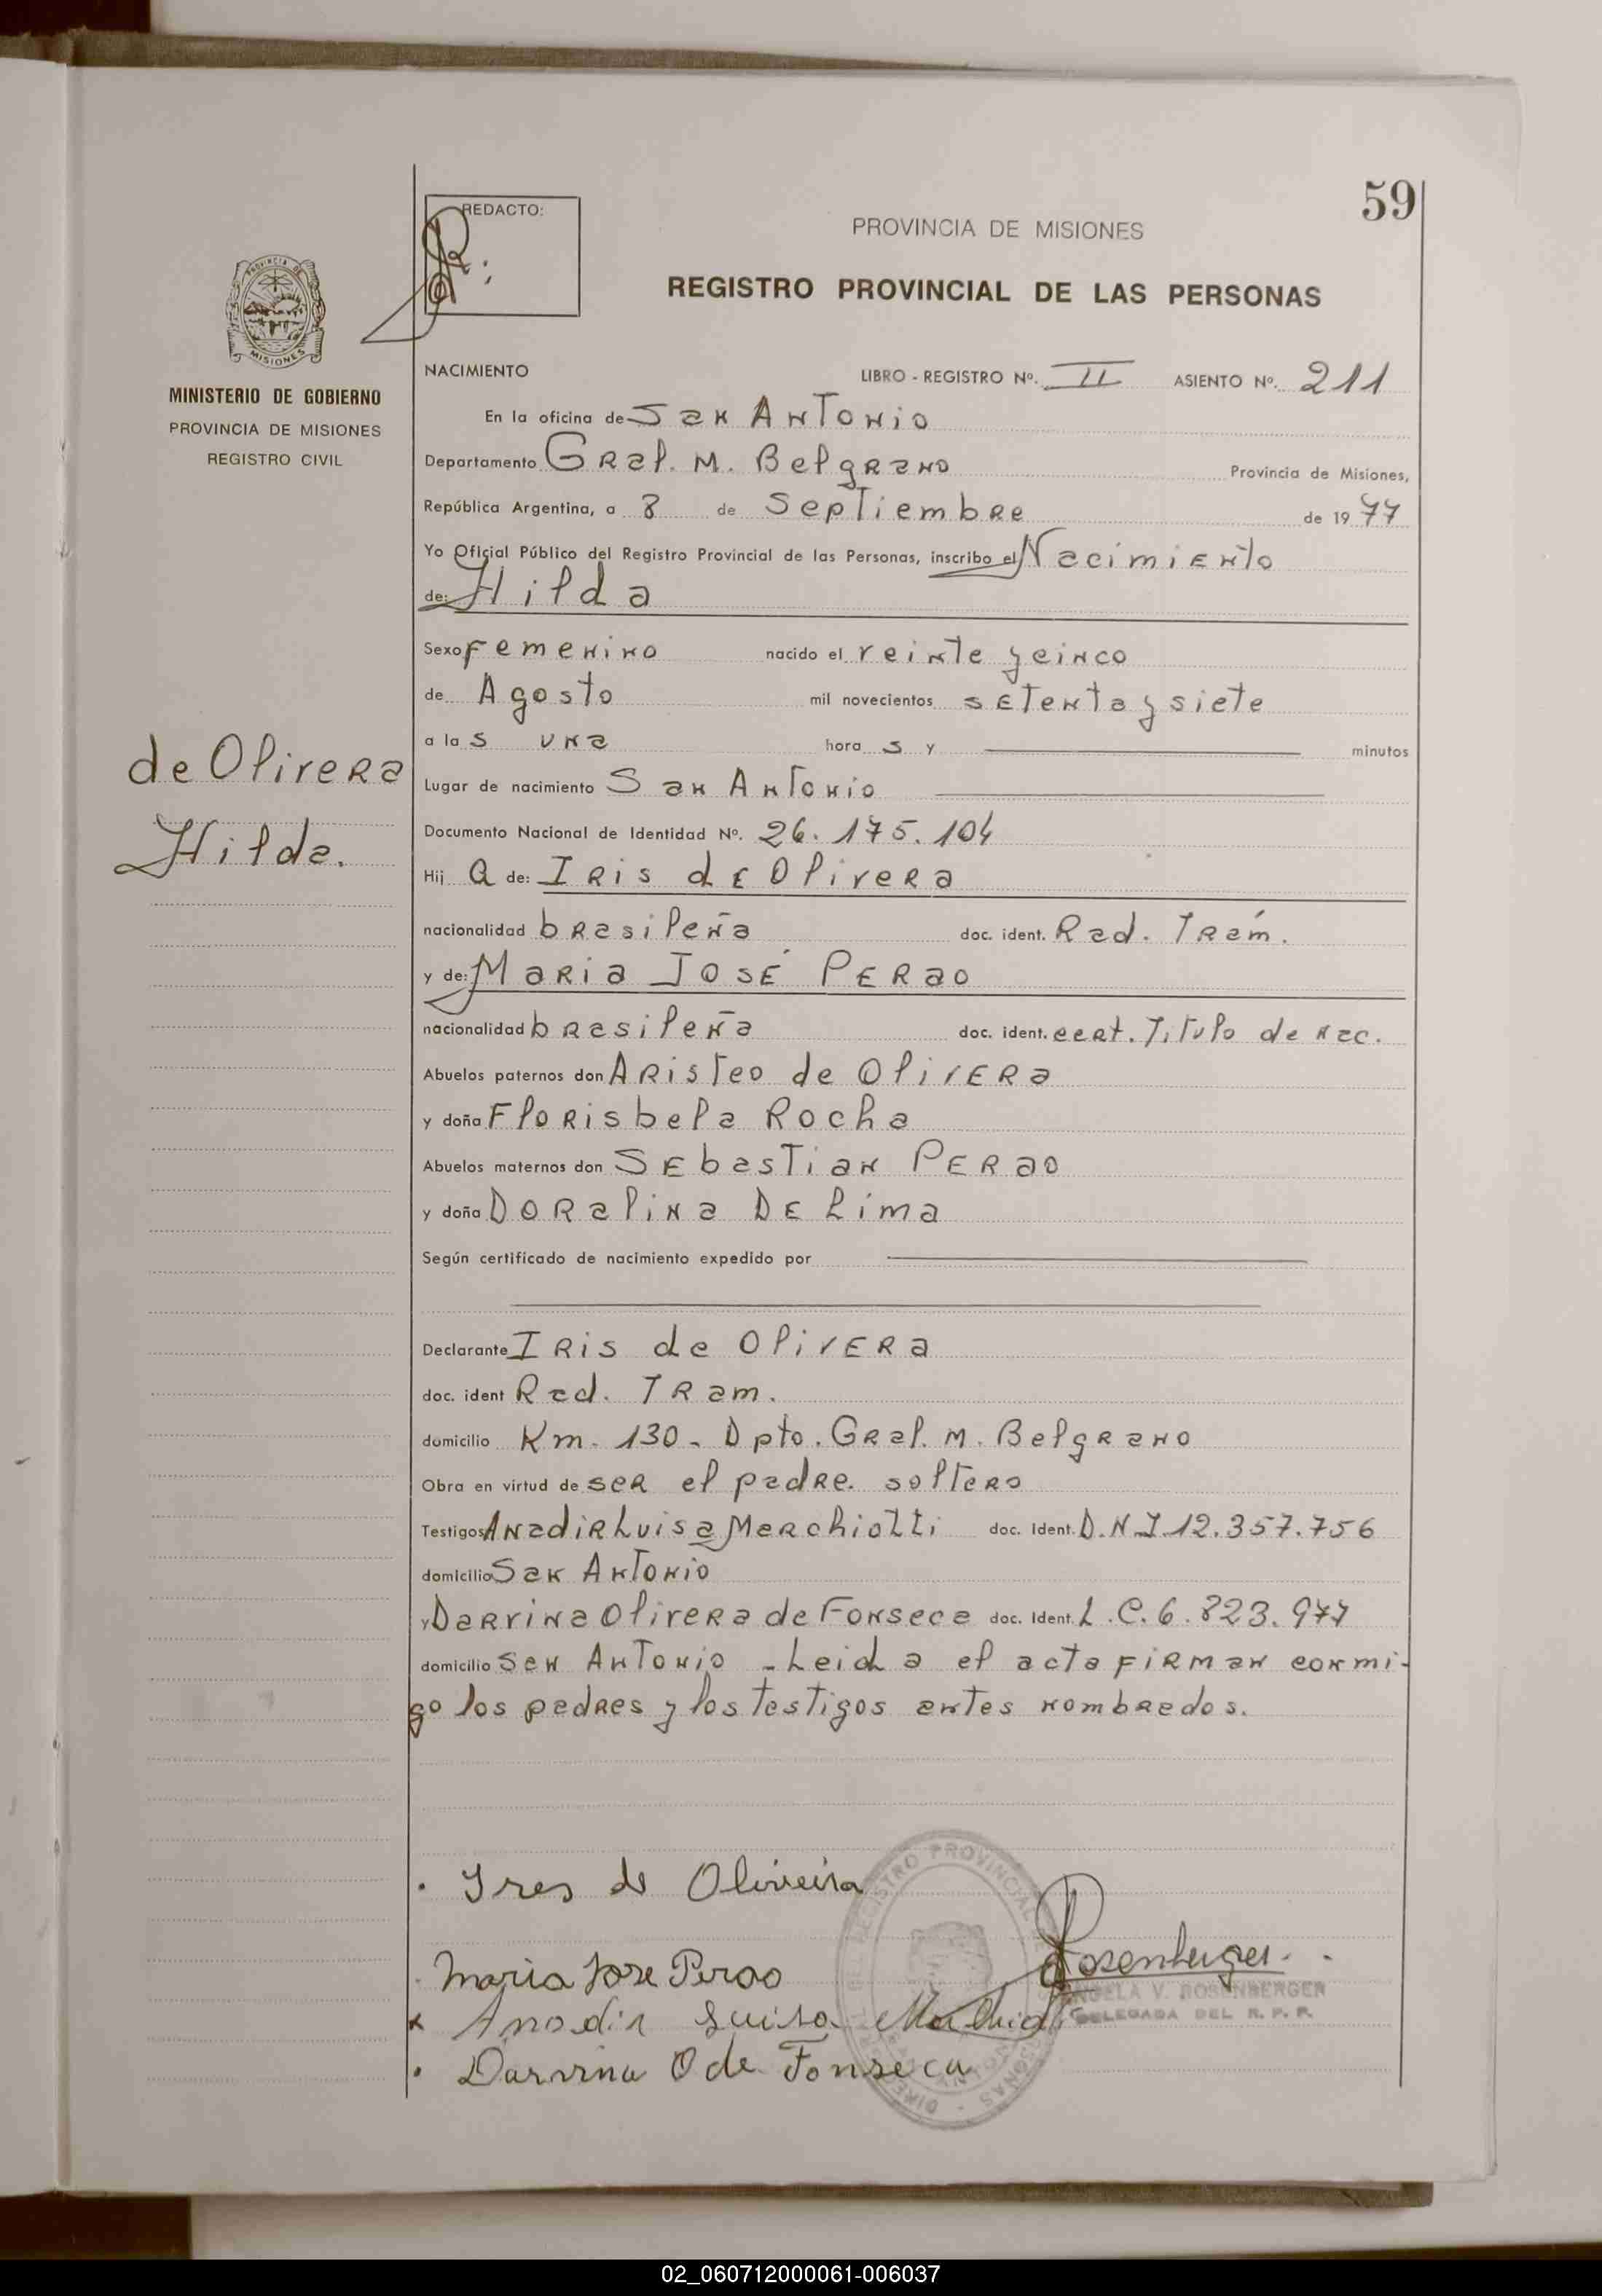 59
REDACTO:
PROVINCIA DE MISIONES
REGISTRO PROVINCIAL DE LAS PERSONAS
PROVINCIA DE
MISIONES
MINISTERIO DE GOBIERNO
PROVINCIA DE MISIONES
REGISTRO CIVIL
de Olivera
Hilda.
NACIMIENTO LIBRO - REGISTRO Nº. II ASIENTO Nº. 211
En la oficina de San Antonio
Departamento Gral. M. Belgrano Provincia de Misiones,
República Argentina, a 8 de Septiembre de 1977
Yo Oficial Público del Registro Provincial de las Personas, inscribo el Nacimiento
de: Hilda
Sexo Femenino nacido el veinte y cinco
de Agosto mil novecientos setenta y siete
a las una horas y minutos
Lugar de nacimiento San Antonio
Documento Nacional de Identidad Nº. 26.175.104
Hija de: Iris de Olivera
nacionalidad brasileña doc. ident. Rad. Trám.
y de: Maria José Perao
nacionalidad brasileña doc. ident. cert. Titulo de nac.
Abuelos paternos don Aristeo de Olivera
y doña Florisbela Rocha
Abuelos maternos don Sebastian Perao
y doña Doralina De Lima
Según certificado de nacimiento expedido por
Declarante Iris de Olivera
doc. ident Rad. Tram.
domicilio Km. 130 - Dpto. Gral. M. Belgrano
Obra en virtud de ser el padre. soltero
Testigos Anadir Luisa Marchiotti doc. Ident. D.N.I. 12.357.756
domicilio San Antonio
y Darvina Olivera de Fonseca doc. Ident. L.C. 6.823.977
domicilio San Antonio - Leida el acta firman conmi-
go los padres y los testigos antes nombrados.
Ires de Oliveira
Rosenberger
Maria Jose Perao
ANGELA V. ROSENBERGER
DELEGADA DEL R. P. P.
Anadir Luisa
Darvina O de Fonseca
02_060712000061-006037